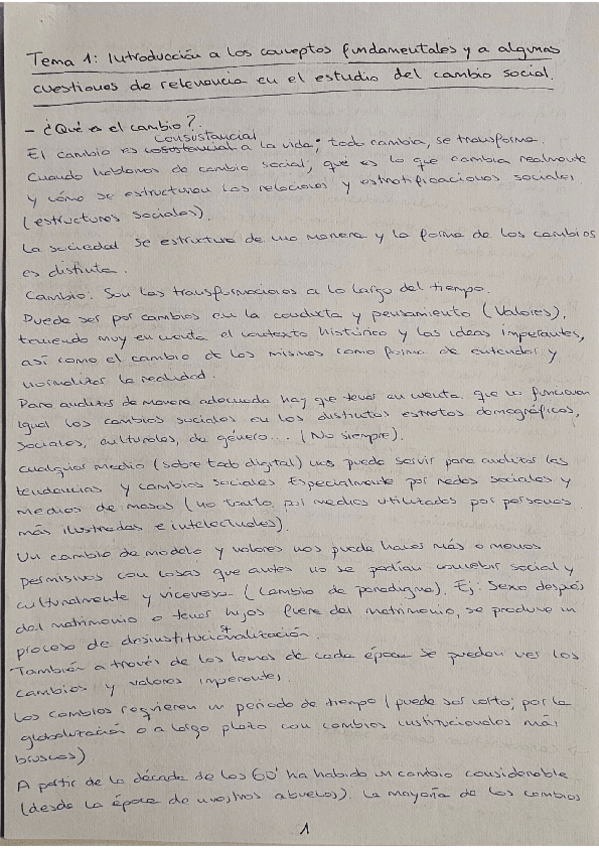 Tema 1: Introducción a los conceptos fundamentales y a algunas
cuestiones de relevancia en el estudio del cambio social.
- ¿Qué es el cambio?
Consustancial
El cambio es cosustancial a la vida; todo cambia, se transforma.
Cuando hablamos de cambio social, qué es lo que cambia realmente
y cómo se estructuran las relaciones y estratificaciones sociales
(estructuras sociales).
La sociedad se estructura de una manera y la forma de los cambios
es distinta.
Cambio: Son las transformaciones a lo largo del tiempo.
Puede ser por cambios en la conducta y pensamiento (Valores),
teniendo muy en cuenta el contexto histórico y las ideas imperantes,
así como el cambio de los mismos como forma de entender y
normalizar la realidad.
Para analizar de manera adecuada hay que tener en cuenta que no funcionan
igual los cambios sociales en los distintos estratos demográficos,
sociales, culturales, de género... (No siempre).
Cualquier medio (sobre todo digital) nos puede servir para analizar las
tendencias y cambios sociales Especialmente por redes sociales y
medios de masas (no tanto por medios utilizados por personas
más ilustradas e intelectuales).
Un cambio de modelo y valores nos puede hacer más o menos
permisivos con cosas que antes no se podían concebir social y
culturalmente y viceversa (Cambio de paradigma). Ej: Sexo después
del matrimonio o tener hijos fuera del matrimonio, se produce un
proceso de desinstitucionalización.
También a través de los lemas de cada época se pueden ver los
cambios y valores imperantes.
Los cambios requieren un periodo de tiempo (puede ser corto; por la
globalización o a largo plazo con cambios institucionales más
bruscos)
A partir de la década de los 60' ha habido un cambio considerable
(desde la época de nuestros abuelos). La mayoría de los cambios
1